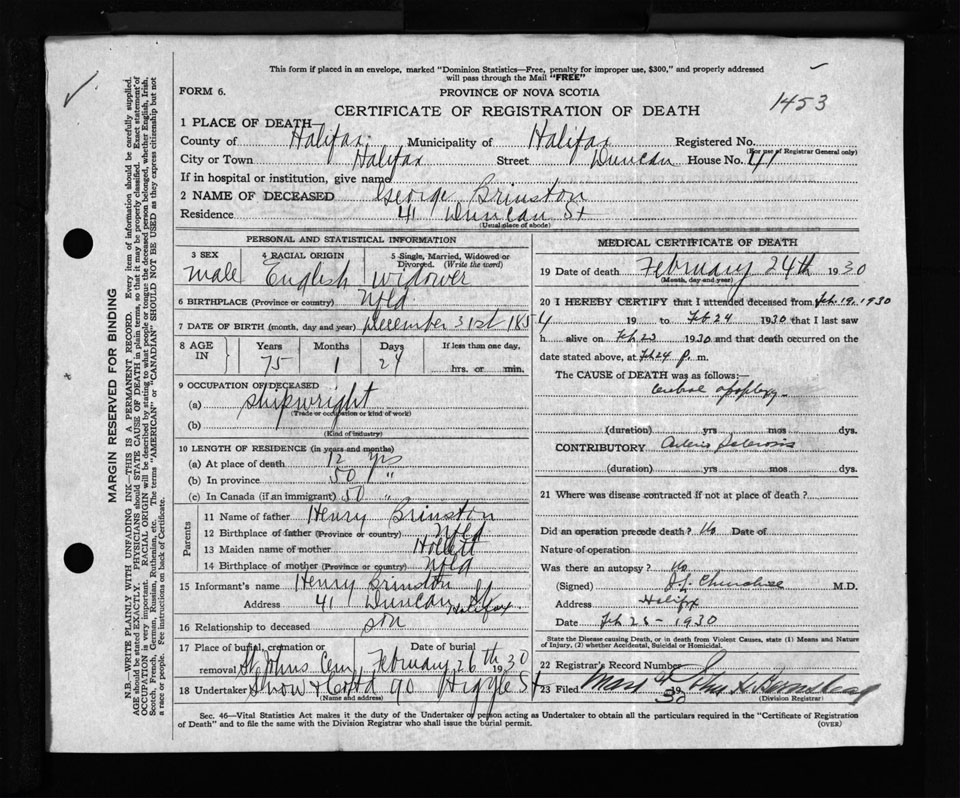 This form if placed in an envelope, marked "Dominion Statistics—Free, penalty for improper use, $300," and properly addressed
will pass through the Mail "FREE"
FORM 6.
PROVINCE OF NOVA SCOTIA
CERTIFICATE OF REGISTRATION OF DEATH
1453
1 PLACE OF DEATH
County of Halifax Municipality of Halifax Registered No.
(For use of Registrar General only)
City or Town Halifax Street Duncan House No. 41
If in hospital or institution, give name
2 NAME OF DECEASED George Brinston
Residence 41 Duncan St
(Usual place of abode)
PERSONAL AND STATISTICAL INFORMATION
3 SEX 4 RACIAL ORIGIN 5 Single, Married, Widowed or
Divorced. (Write the word)
male English Widower
6 BIRTHPLACE (Province or country) Nfld
7 DATE OF BIRTH (month, day and year) December 31st 185
4
8 AGE IN Years Months Days If less than one day,
75 1 24 hrs. or min.
9 OCCUPATION OF DECEASED
(a) Shipwright
(Trade or occupation or kind of work)
(b)
(Kind of industry)
10 LENGTH OF RESIDENCE (in years and months)
(a) At place of death 12 yrs
(b) In province 50 "
(c) In Canada (if an immigrant) 50 "
Parents
11 Name of father Henry Brinston
12 Birthplace of father (Province or country) Nfld
13 Maiden name of mother Hollett
14 Birthplace of mother (Province or country) Nfld
15 Informant's name Henry Brinston
Address 41 Duncan St Halifax
16 Relationship to deceased son
17 Place of burial, cremation or removal St Johns Cem Date of burial February 26th 1930
18 Undertaker Snow & Co Ltd 90 Argyle St
(Name and address)
MEDICAL CERTIFICATE OF DEATH
19 Date of death February 24th 1930
(Month, day and year)
20 I HEREBY CERTIFY that I attended deceased from Feb 19, 1930
19 to Feb 24 1930 that I last saw
h alive on Feb 23 1930 and that death occurred on the
date stated above, at Feb 24 p. m.
The CAUSE of DEATH was as follows:—
apoplexy
(duration) yrs mos dys.
CONTRIBUTORY Arterio Sclerosis
(duration) yrs mos dys.
21 Where was disease contracted if not at place of death?
Did an operation precede death? No Date of
Nature of operation
Was there an autopsy? No
(Signed) M.D.
Address Halifax
Date Feb 25 - 1930
State the Disease causing Death, or in death from Violent Causes, state (1) Means and Nature
of Injury, (2) whether Accidental, Suicidal or Homicidal.
22 Registrar's Record Number
23 Filed 19 30
(Division Registrar)
Sec. 46—Vital Statistics Act makes it the duty of the Undertaker or person acting as Undertaker to obtain all the particulars required in the "Certificate of Registration
of Death" and to file the same with the Division Registrar who shall issue the burial permit.
(OVER)
MARGIN RESERVED FOR BINDING
N.B.—WRITE PLAINLY WITH UNFADING INK—THIS IS A PERMANENT RECORD. Every item of information should be carefully supplied.
AGE should be stated EXACTLY. PHYSICIANS should STATE CAUSE OF DEATH in plain terms, so that it may be properly classified. Exact statement of
OCCUPATION is very important. RACIAL ORIGIN will be described by stating to what people or tongue the deceased person belonged, whether English, Irish,
Scotch, French, German, Russian, Ruthenian, etc. The terms "AMERICAN" or "CANADIAN" SHOULD NOT BE USED as they express citizenship but not
a race or people. Fee instructions on back of Certificate.